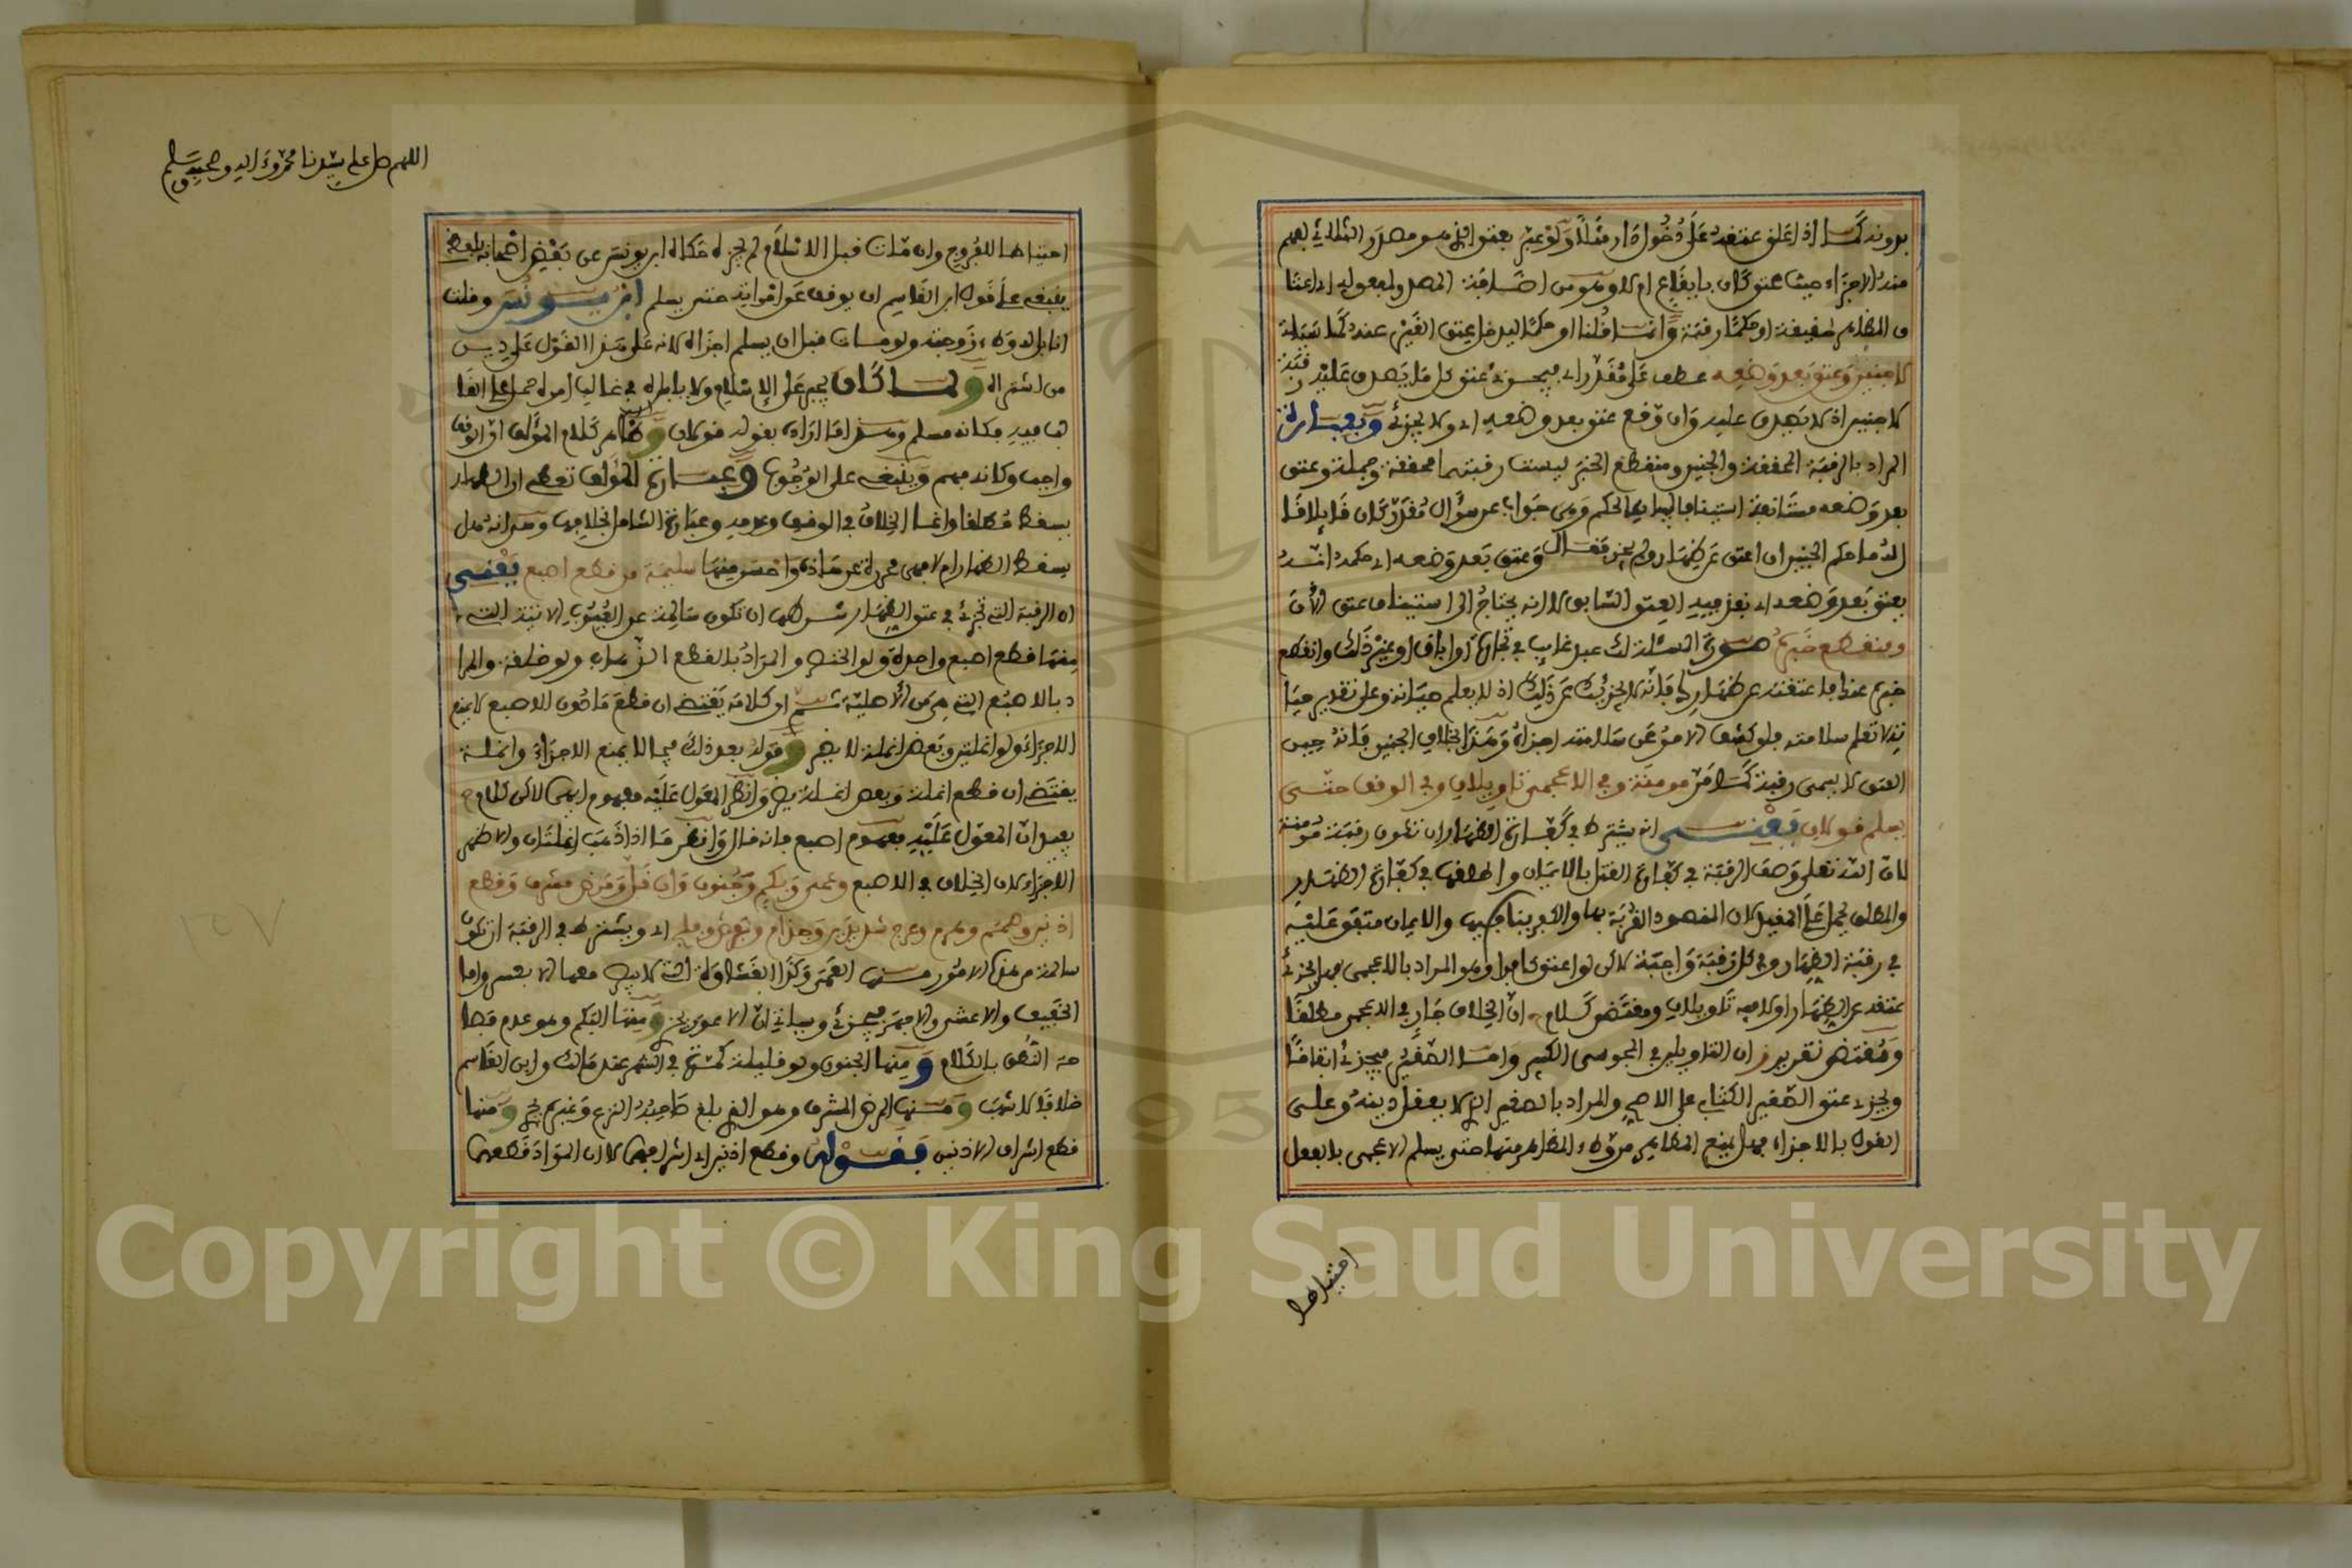 بدونه كما اذا علق عتقه على دخول دار مثلا ولو عبر بعتق الذي هو مصدر الثلاثي لفهم
منه الاجزاء حيث عتق كان بايقاع ام لا وهو من اضافة المصدر لمفعوله اي اعتا
ق المظاهر حقيقة او حكما رقبة وانما قلنا او حكما ليدخل عتق الغير عنه كما سياتي
لا جنين وعتق بعد وضعه عطف على مقدر اي فيجزئ عتق كل ما يصدق عليه رقبة
لا جنين اذ لا يصدق عليه وان وقع عتق بعد وضعه اي ولا يجزئ وبعبارة
المراد بالرقبة المحققة والجنين ومنقطع الخبر ليست رقبتهما محققة وجملة وعتق
بعد وضعه مستانفة استينافا بيانيا لحكم وهي جواب عن سؤال مقدر كان قايلا قا
ل له ما حكم الجنين ان اعتق عن ظهار ولم يجز فقال وعتق بعد وضعه اي حكمه انه
يعتق بعد وضعه اي نفذ فيه العتق السابق لا انه يحتاج الى استيناف عتق الآن
ومنقطع خبره صورة المسئلة لك عبد غايب في تجارة او اباق او غير ذلك وانقطع
خبره عنك فاعتقته عن ظهارك فانه لا يجزئك عن ذلك اذ لا يعلم حياته وعلى تقدير حيا
ته لا تعلم سلامته فلو كشف الامر عن سلامته اجزاه وهذا بخلاف الجنين فانه حين
العتق لا يسمى رقبة كما مر مومنة وفي الاعجمي تاويلان وفي الوقف حتى
يسلم قولان يعني انه يشترط في كفارة الظهار ان تكون رقبته مومنة
لان الله تعلى وصف الرقبة في كفارة القتل بالايمان واطلقها في كفارة الظهار
والمطلق يحمل على المقيد لان المقصود القربة بها والكفر ينافيها والايمان متفق عليه
في رقبة الظهار وفي كل رقبة واجبة لاكن لو اعتق كافرا وهو المراد بالاعجمي فهل يجزئ
عتقه عن الظهار او لا فيه تاويلان ومقتضى كلامه ان الخلاف جار في الاعجمي مطلقا
ومقتضى تقرير ز ان التاويلين في المجوسي الكبير واما الصغير فيجزئ اتفاقا
ويجزئ عتق الصغير الكتابي على الاصح والمراد بالصغير الذي لا يعقل دينه وعلى
القول بالاجزاء فهل يمنع المظاهر من وطء المظاهر منها حتى يسلم الاعجمي بالفعل
احتياطا
اللهم صل على سيدنا محمد وءاله وصحبه وسلم
احتياطا للفروج وان مات قبل الاسلام لم يجزه حكاه ابن يونس عن بعض اصحابه بلفظ
ينبغي على قول ابن القاسم ان يوقف عن امراته حتى يسلم ابن يونس وقلت
انا بل له وطء زوجته ولو مات قبل ان يسلم اجزاه لانه على هذا القول على دين
من اشتراه ولما كان يجبر على الاسلام ولا ياباه في غالب امره حمل على الغا
لب فيه فكانه مسلم وهذا ما اراده بقوله قولان وظاهر كلام المؤلف ان الوقف
واجب وكانه فهم وينبغي على الوجوب وعبارة المؤلف تعطي ان الظهار
يسقط مطلقا وانما الخلاف في الوقف وعدمه وعبارة الشامل بخلافها وهو انه هل
يسقط الظهار ام لا فهي محررة عن هاذه واحسن منها سليمة من قطع اصبع يعني
ان الرقبة التي تجزئ في عتق الظهار شرطها ان تكون سالمة عن العيوب الاتية التي
منها قطع اصبع واحدة ولو الخنصر والمراد بالقطع الذهاب ولو خلقة والمرا
د بالاصبع التي هي من الاصلية ثم ان كلامه يقتضي ان قطع ما دون الاصبع لا يمنع
الاجزاء ولو انملتين وبعض انملة لا يضر وقوله بعد ذلك فيما لا يمنع الاجزاء وانملة
يقتضي ان قطع انملة وبعض انملة يضر وانظر المعول عليه مفهوم ايهما لاكن كلام ح
يفيد ان المعول عليه مفهوم اصبع فانه قال وانظر ما اذا ذهب انملتان والاظهر
الاجزاء لان الخلاف في الاصبع وعمى وبكم وجنون وان قل ومرض مشرف وقطع
اذنين وصمم وهرم وعرج شديدين وجذام وبرص وفلج اي ويشترط في الرقبة ان تكون
سالمة من هذه الامور منها العمى وكذا الغشاوة التي لا يبصر معها الا بعسر واما
الخفيف والاعشى والاجهر فيجزئ وسياتي ان الاعور يجزئ ومنها البكم وهو عدم فصا
حة النطق بالكلام ومنها الجنون ولو قليلا كمرة في الشهر عند مالك وابن القاسم
خلافا لاشهب ومنها المرض المشرف وهو الذي بلغ صاحبه النزع وغيره يجزئ ومنها
قطع اشراف الاذنين فقوله وقطع اذنين اي اشرافهما لا ان المراد قطعهما
١٥٧